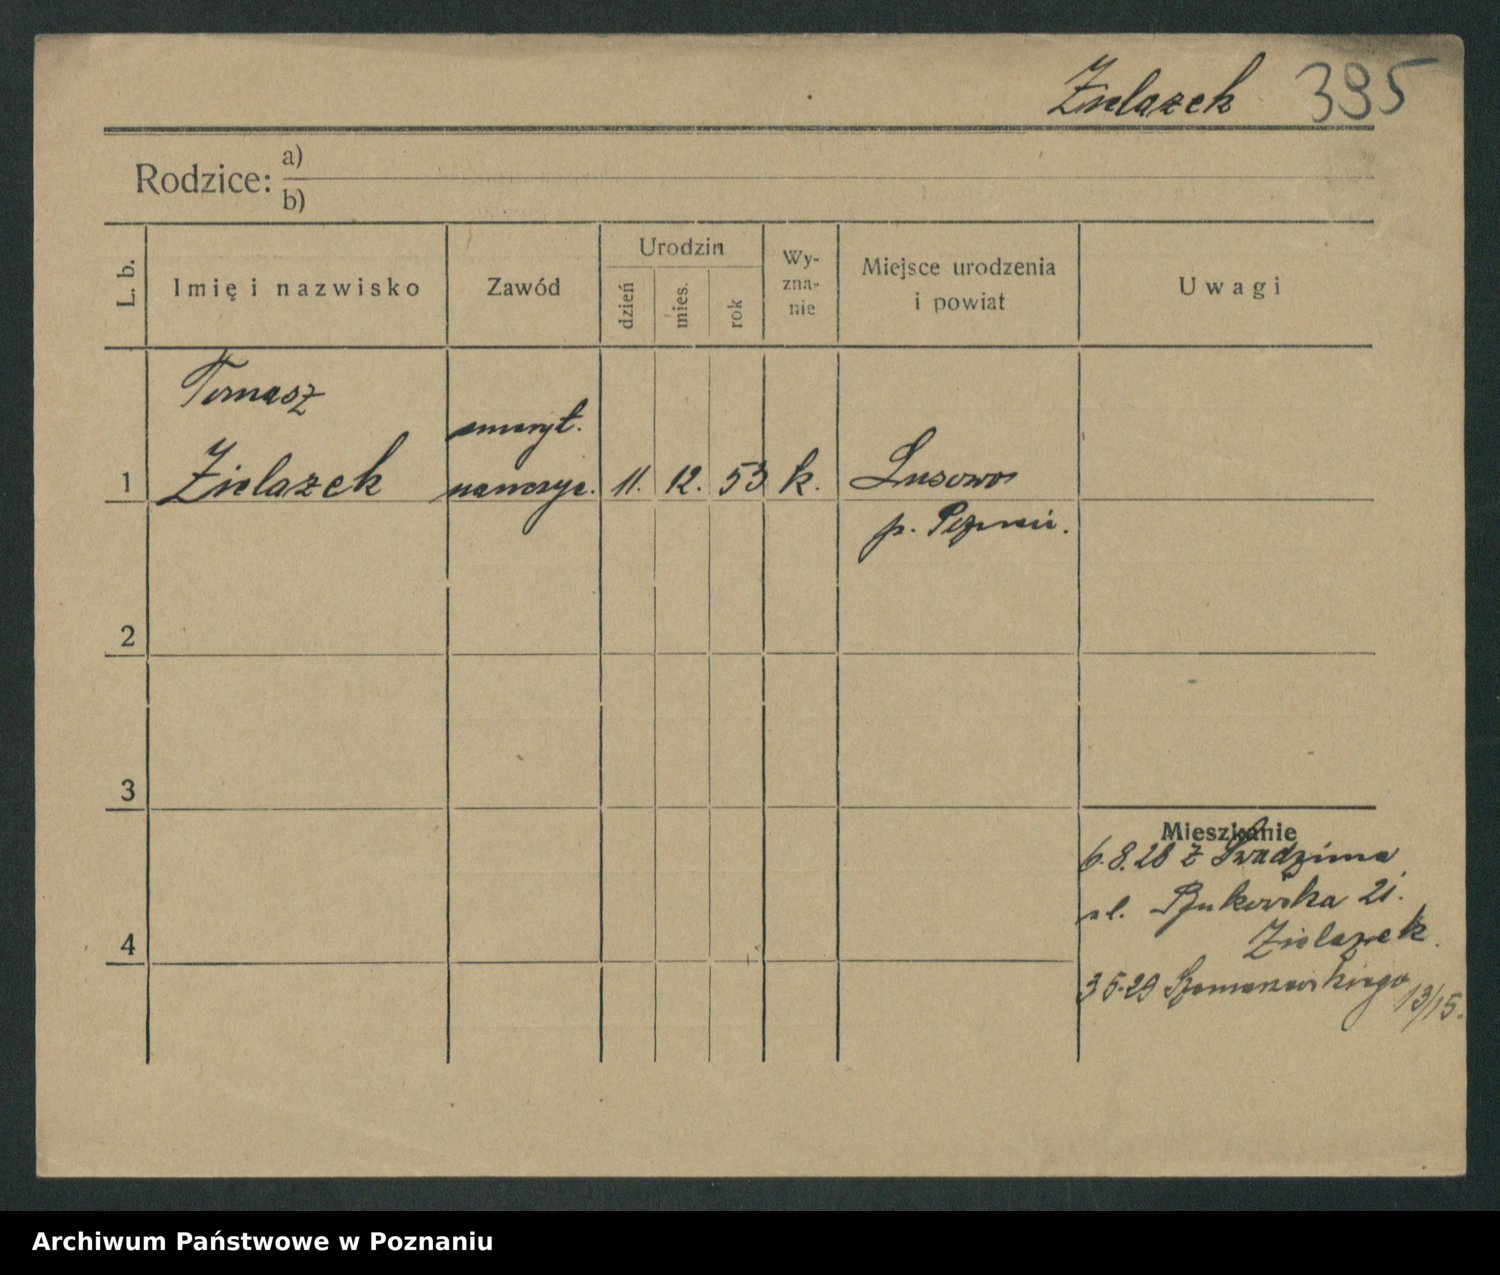 Zielazek 395
Rodzice: a)
b)
L. b.
Imię i nazwisko
Zawód
Urodzin
dzień
mies.
rok
Wy-
zna-
nie
Miejsce urodzenia
i powiat
Uwagi
Tomasz
emeryt.
1 Zielazek nauczyc. 11. 12. 53 k. Lusowo
p. Poznań.
2
3
4
Mieszkanie
6.8.28 z Swadzima
ul. Bukowska 21.
Zielazek.
3 5.29 13/15.
Archiwum Państwowe w Poznaniu